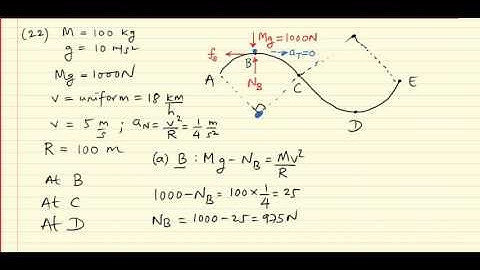 (22) M = 100 kg
g = 10 m/s²
Mg = 1000N
v = uniform = 18 km/h
v = 5 m/s ; aN = v²/R = 1/4 m/s²
R = 100 m
At B
At C
At D
Mg = 1000N
fs
B
aT = 0
A
NB
C
E
D
(a) B : Mg - NB = Mv²/R
1000 - NB = 100 × 1/4 = 25
NB = 1000 - 25 = 975N